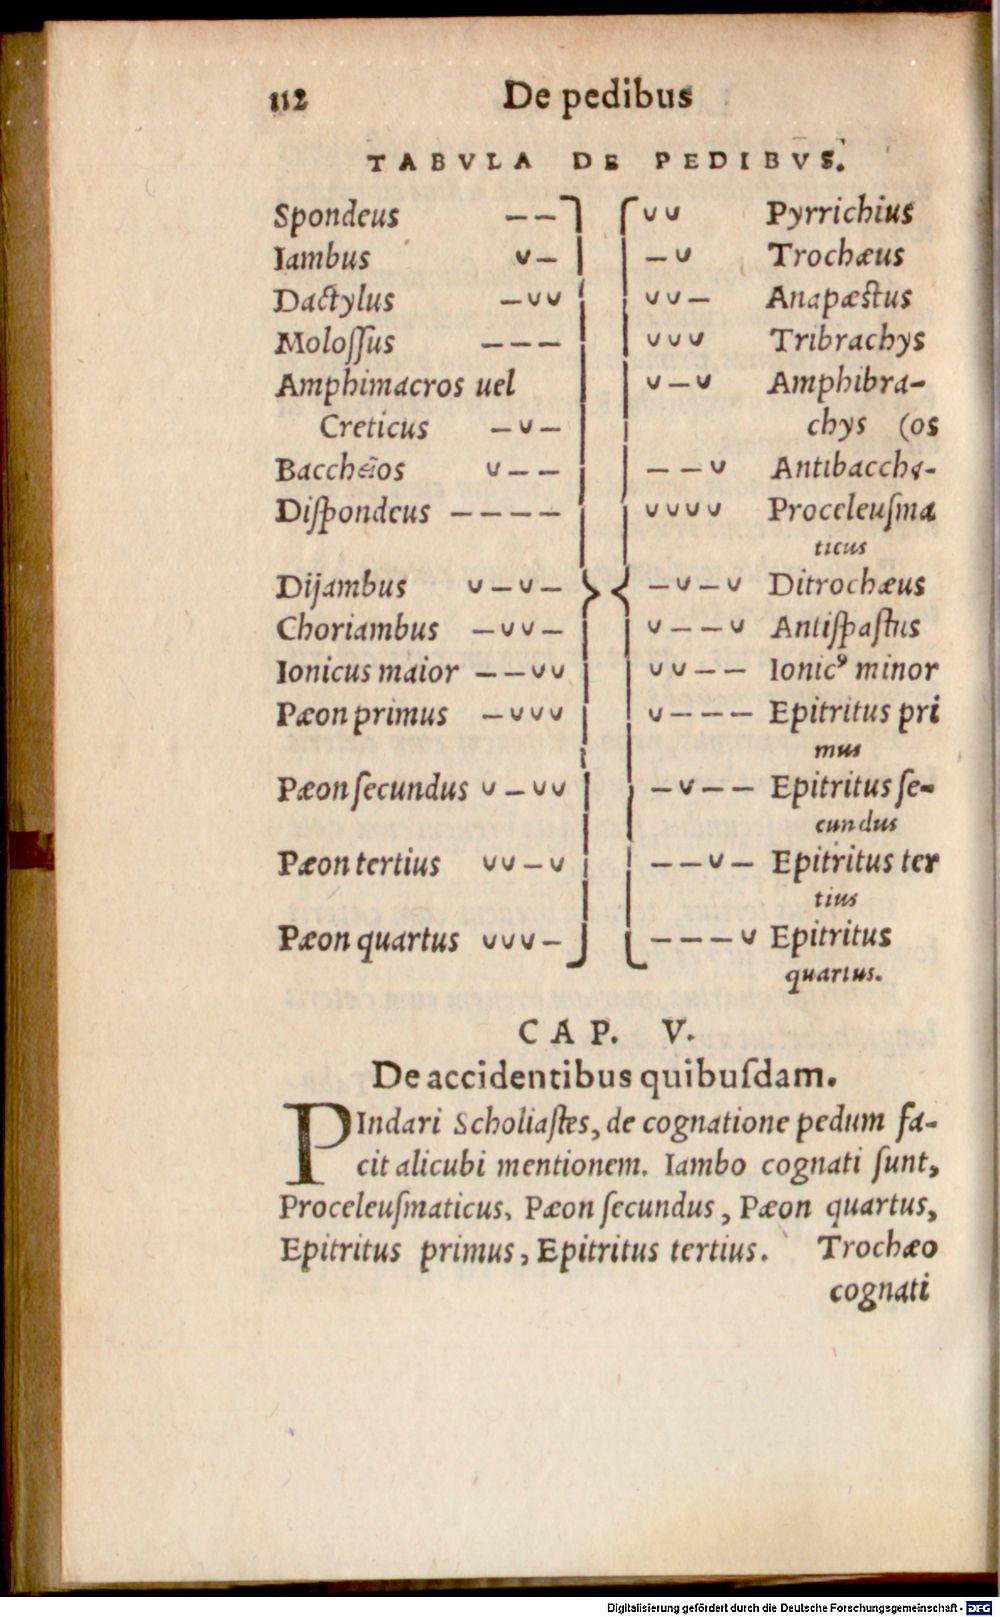 112 De pedibus
TABVLA DE PEDIBVS.
Spondeus – – ᴗ ᴗ Pyrrichius
Iambus ᴗ – – ᴗ Trochæus
Dactylus – ᴗ ᴗ ᴗ ᴗ – Anapæstus
Moloſſus – – – ᴗ ᴗ ᴗ Tribrachys
Amphimacros uel ᴗ – ᴗ Amphibra-
Creticus – ᴗ – chys (os
Bacchēios ᴗ – – – – ᴗ Antibacchę-
Diſpondeus – – – – ᴗ ᴗ ᴗ ᴗ Proceleuſma
ticus
Dijambus ᴗ – ᴗ – – ᴗ – ᴗ Ditrochæus
Choriambus – ᴗ ᴗ – ᴗ – – ᴗ Antiſpaſtus
Ionicus maior – – ᴗ ᴗ ᴗ ᴗ – – Ionicꝰ minor
Pæon primus – ᴗ ᴗ ᴗ ᴗ – – – Epitritus pri
mus
Pæon ſecundus ᴗ – ᴗ ᴗ – ᴗ – – Epitritus ſe-
cundus
Pæon tertius ᴗ ᴗ – ᴗ – – ᴗ – Epitritus ter
tius
Pæon quartus ᴗ ᴗ ᴗ – – – – ᴗ Epitritus
quartus.
CAP. V.
De accidentibus quibuſdam.
PIndari Scholiaſtes, de cognatione pedum fa-
cit alicubi mentionem. Iambo cognati ſunt,
Proceleuſmaticus, Pæon ſecundus, Pæon quartus,
Epitritus primus, Epitritus tertius. Trochæo
cognati
Digitalisierung gefördert durch die Deutsche Forschungsgemeinschaft - DFG